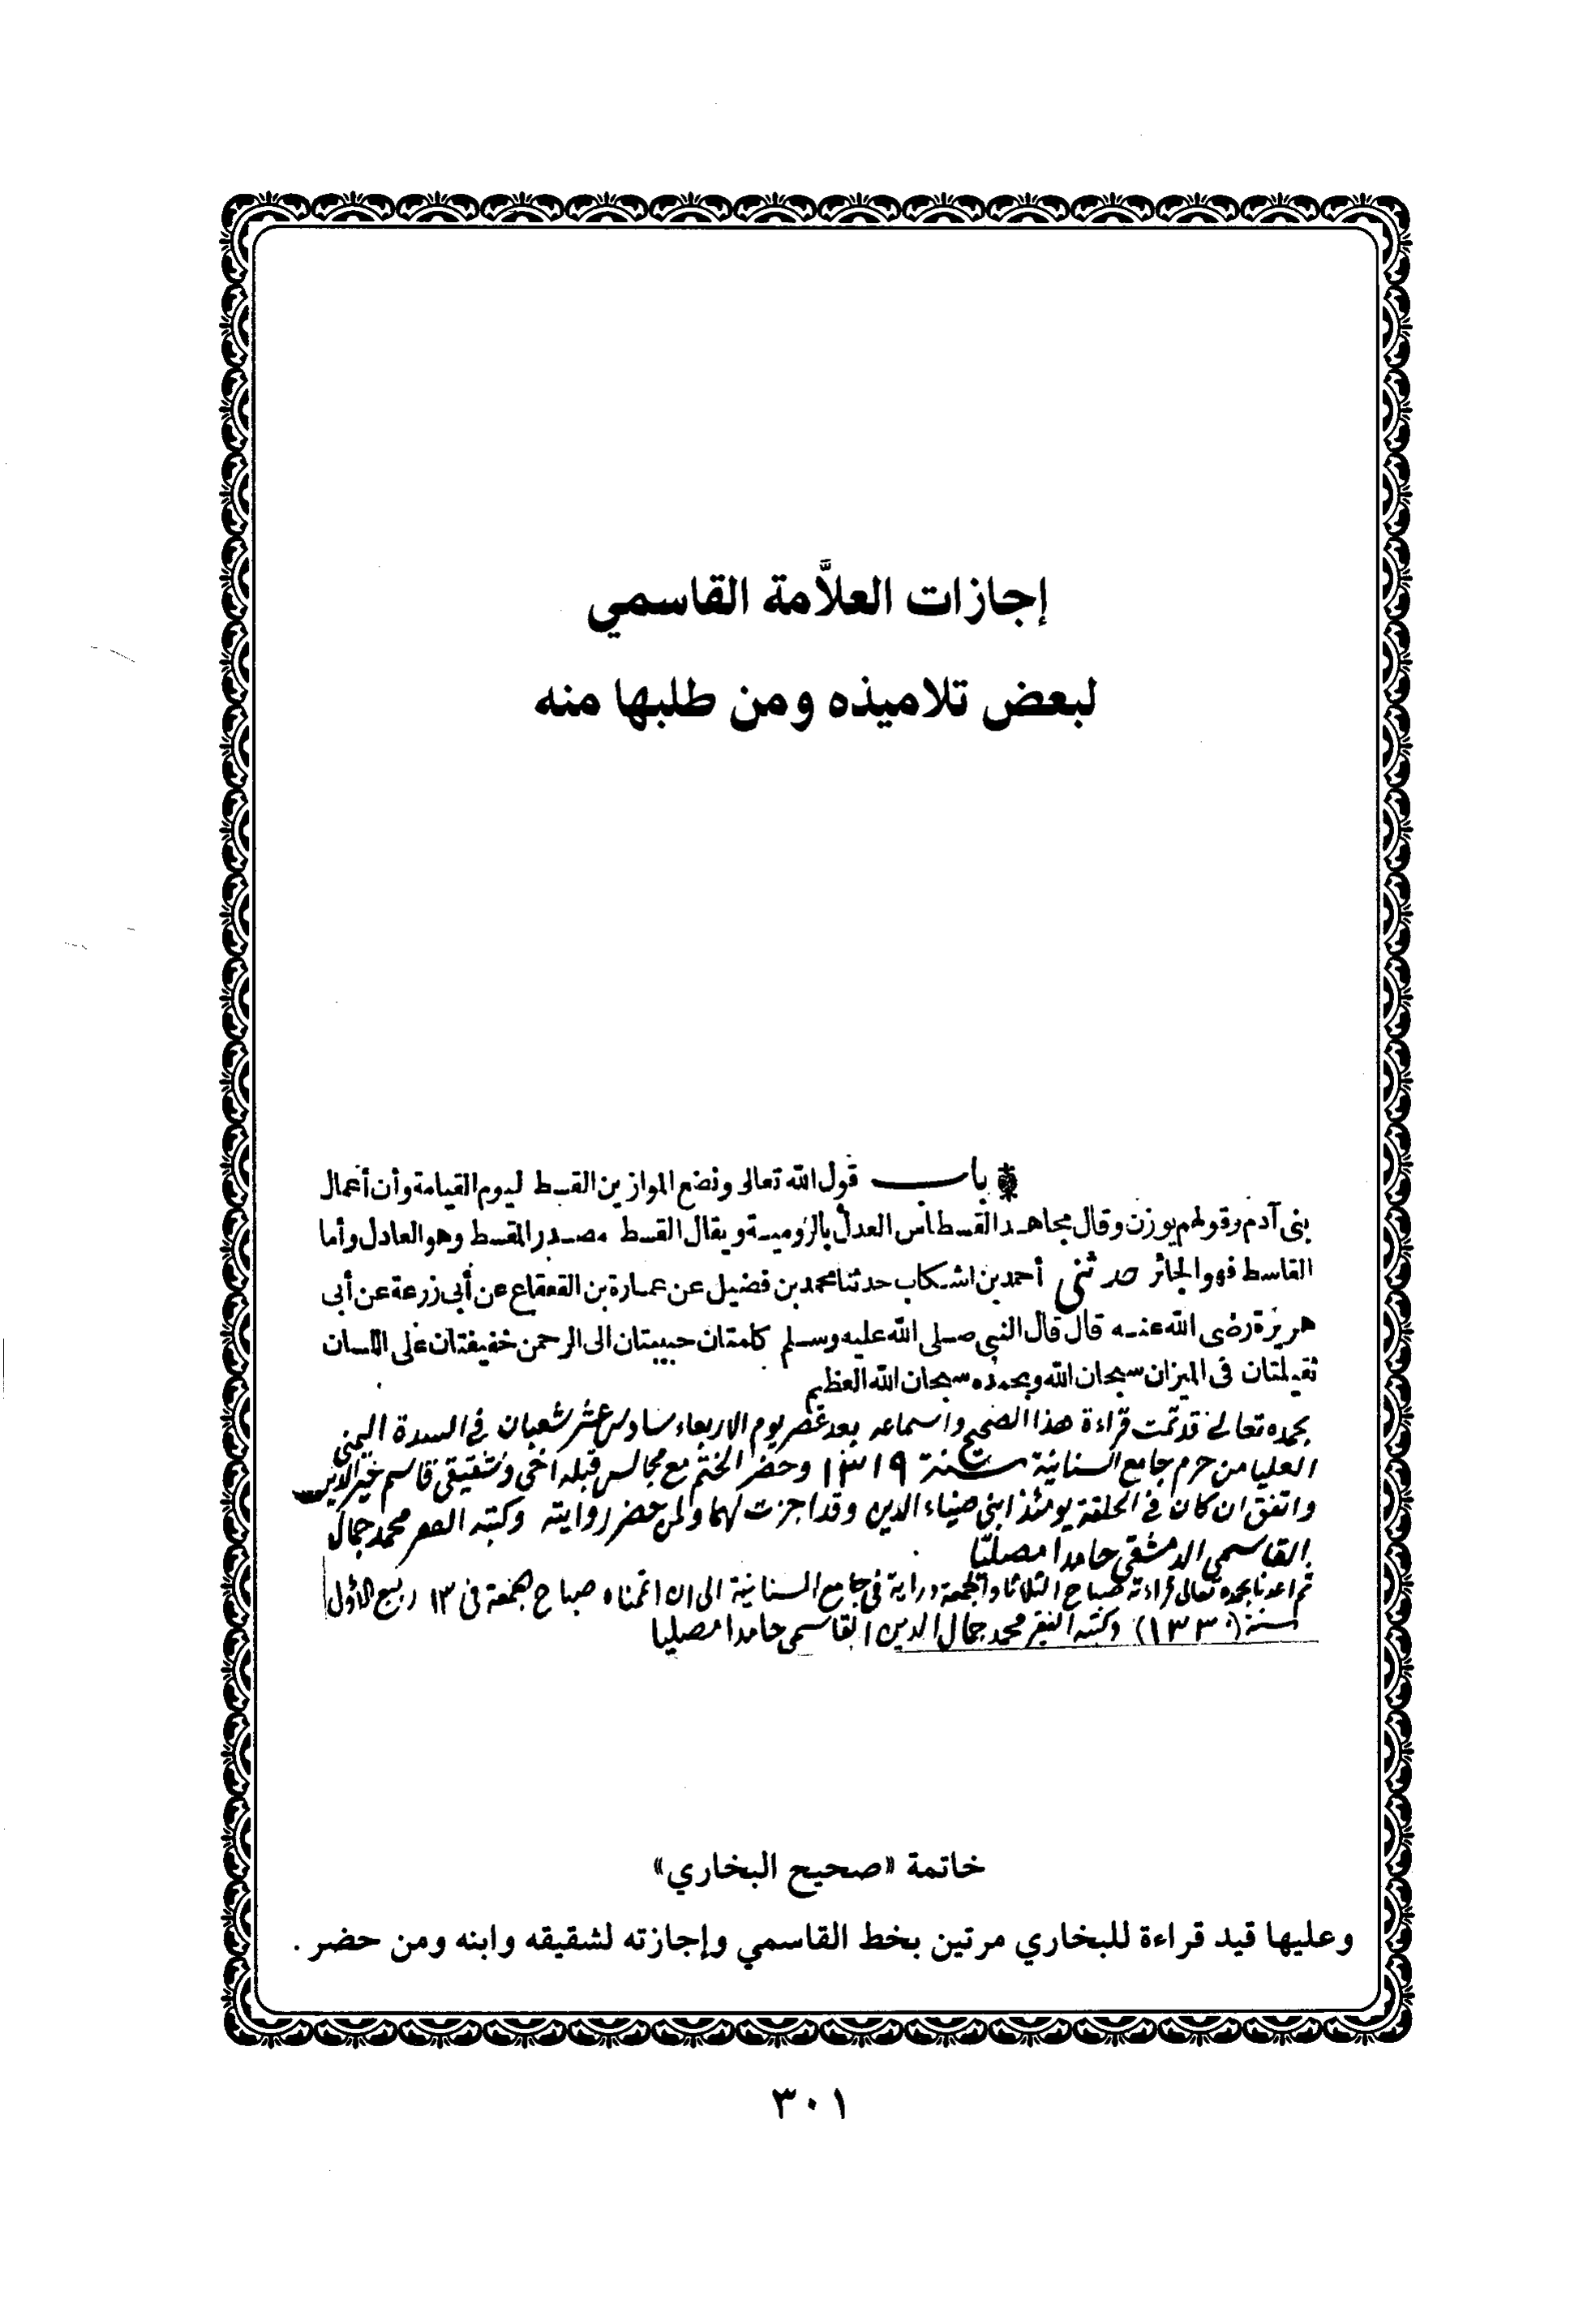 إجازات العلاَّمة القاسمي
لبعض تلاميذه ومن طلبها منه
باب قول الله تعالى ونضع الموازين القسط ليوم القيامة وأن أعمال
بنى آدم وقولهم يوزن وقال مجاهد القسطاس العدل بالرومية ويقال القسط مصدر المقسط وهو العادل وأما
القاسط فهو الجائر حدثنى أحمد بن اشكاب حدثنا محمد بن فضيل عن عمارة بن القعقاع عن أبى زرعة عن أبى
هريرة رضى الله عنه قال قال النبى صلى الله عليه وسلم كلمتان حبيبتان الى الرحمن خفيفتان على اللسان
ثقيلتان فى الميزان سبحان الله وبحمده سبحان الله العظيم
بحمده تعالى قد تمت قراءة هذا الصحيح واسماعه بعد عصر يوم الاربعاء سادس عشر شعبان في السدة اليمنى
العليا من حرم جامع السنانية سنة ١٣١٩ وحضر الختم مع مجالس قبله أخى وشقيقى قاسم خير الدين
واتفق ان كان فى الحلقة يومئذ ابنى ضياء الدين وقد اجزت لهما ولمن حضر روايته وكتبه محمد جمال
القاسمي الدمشقى حامدا مصليا
ثم اعدنا بحمده تعالى قراءته صباح الثلاثا والجمعة دراية فى جامع السنانية الى ان اتمناه صباح جمعة فى ١٣ ربيع الاول
سنة (١٣٣٠) وكتبه الفقير محمد جمال الدين القاسمى حامدا مصليا
خاتمة «صحيح البخاري»
وعليها قيد قراءة للبخاري مرتين بخط القاسمي وإجازته لشقيقه وابنه ومن حضر .
٣٠١